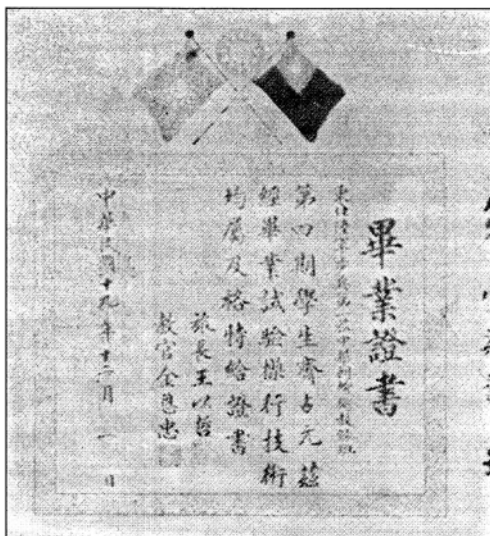 畢業證書
東北陸軍步兵第
第四期學生齊占元茲
經畢業試驗操行技術
均屬及格特給證書
旅長王以哲
教官金恩忠
中華民國十九年十二月 一 日